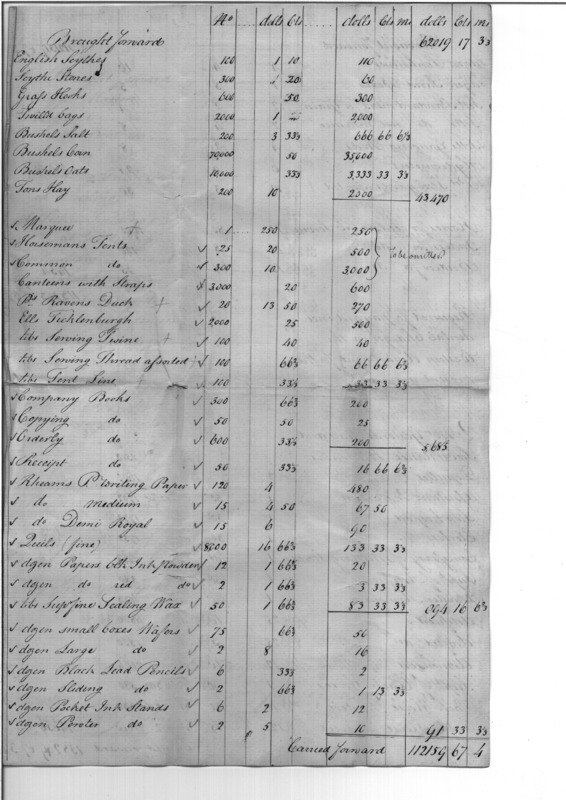 No dolls Cts dolls Cts Ms dolls Cts Ms
Brought forward 62019 17 3⅓
English Scythes 100 1 10 110
Scythe Stones 300 20 60
Grass Hooks 600 50 300
Twill'd bags 2000 1 2,000
Bushels Salt 200 3 33⅓ 666 66 6⅔
Bushels Corn 70,000 50 35,000
Bushels Oats 10,000 33⅓ 3,333 33 3⅓
Tons Hay 200 10 2000 43470
s Marquee 1 250 250
s Horsemans Tents 25 20 500 To be omitted
s Common do 300 10 3000
Canteens with Straps 3,000 20 600
Ps Ravens Duck 20 13 50 270
Ells Ticklenburgh 2,000 25 500
lbs Sewing Twine 100 40 40
lbs Sewing Thread assorted 100 66⅔ 66 66 6⅔
lbs Tent Line 100 33⅓ 33 33 3⅓
s Company Books 300 66⅔ 200
s Copying do 50 50 25
s Orderly do 600 33⅓ 200 5685
s Receipt do 50 33⅓ 16 66 6⅔
s Rheams Pr Writing Paper 120 4 480
s do medium 15 4 50 67 50
s do Demi Royal 15 6 90
s Quils (fine) 8000 16 66⅔ 133 33 3⅓
s dozen Papers blk Ink powder 12 1 66⅔ 20
s dozen do red do 2 1 66⅔ 3 33 3⅓
s lbs Supfine Sealing Wax 50 1 66⅔ 83 33 3⅓ 894 16 6⅔
s dozen small boxes Wafers 75 66⅔ 50
s dozen Large do 2 8 16
s dozen Black Lead Pencils 6 33⅓ 2
s dozen Sliding do 2 66⅔ 1 33 3⅓
s dozen Pocket Ink Stands 6 2 12
s dozen Pewter do 2 5 10 91 33 3⅓
Carried forward 112159 67 4